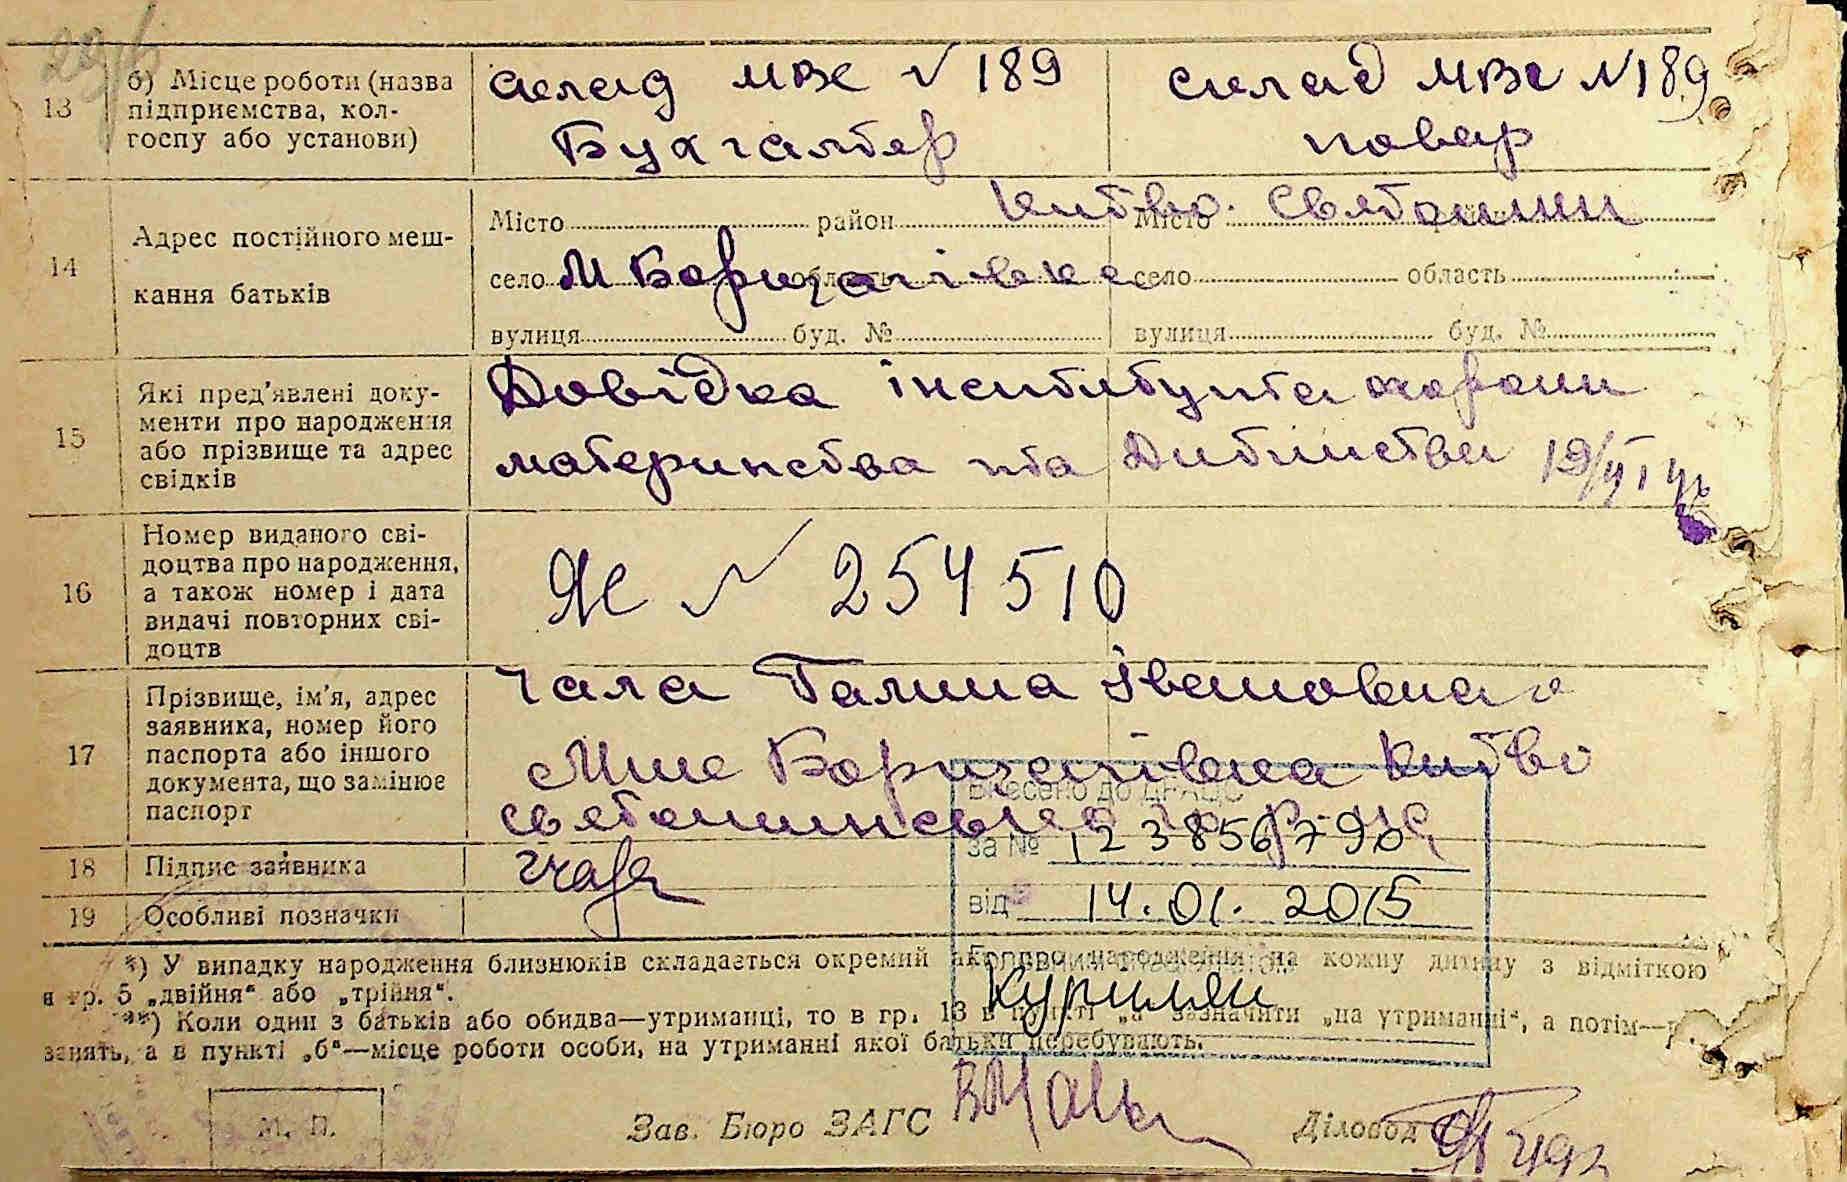 13 б) Місце роботи (назва підприємства, колгоспу або установи)
склад МВС N 189
Бухгалтер
склад МВС N 189
повар
14 Адрес постійного мешкання батьків
Місто район Місто
Києво. Святошин
село М Борщагівка область село область
вулиця буд. № вулиця буд. №
15 Які пред'явлені документи про народження або прізвище та адрес свідків
Довідка інститута охорони
материнства та Дитинства 19/VI
16 Номер виданого свідоцтва про народження, а також номер і дата видачі повторних свідоцтв
ЯЕ N 254510
17 Прізвище, ім'я, адрес заявника, номер його паспорта або іншого документа, що замінює паспорт
Чала Галина Івановна
Мик Борщагівка Києво
Святошинського р-на
18 Підпис заявника
19 Особливі позначки
Внесено до ДРАЦС
за № 123856790
від 14.01.2015
*) У випадку народження близнюків складається окремий акт про народження на кожну дитину з відміткою
в гр. 5 „двійня“ або „трійня“.
**) Коли один з батьків або обидва—утриманці, то в гр. 13 в пункті „а“ зазначити „на утриманні“, а потім—р
занять, а в пункті „б“—місце роботи особи, на утриманні якої батьки перебувають.
М. П.
Зав. Бюро ЗАГС Діловод